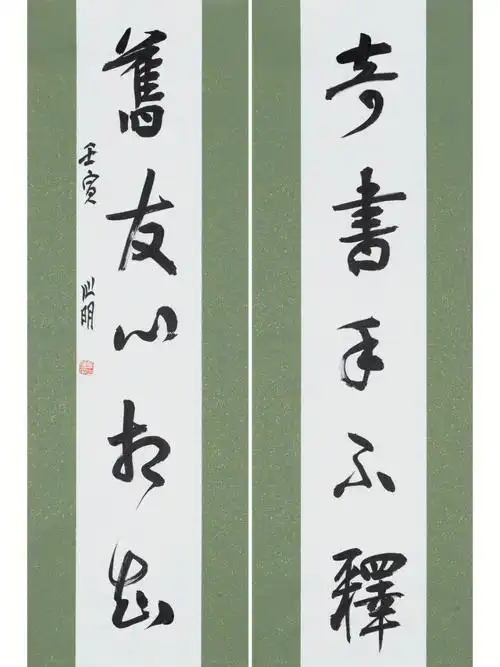 奇書手不釋
舊友心相知
壬寅
心明